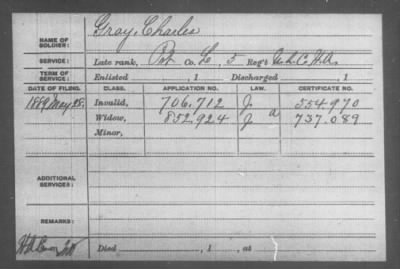 NAME OF SOLDIER: Gray, Charles
SERVICE: Late rank, Pvt Co. L, 5 Reg't U.S.C.H.A.
TERM OF SERVICE: Enlisted , 1 Discharged , 1
DATE OF FILING. CLASS. APPLICATION NO. LAW. CERTIFICATE NO.
1889 May 28. Invalid, 706.712 J. 554970
Widow, 852.924 J a 737.089
Minor,
ADDITIONAL SERVICES:
REMARKS:
Died , 1 , at